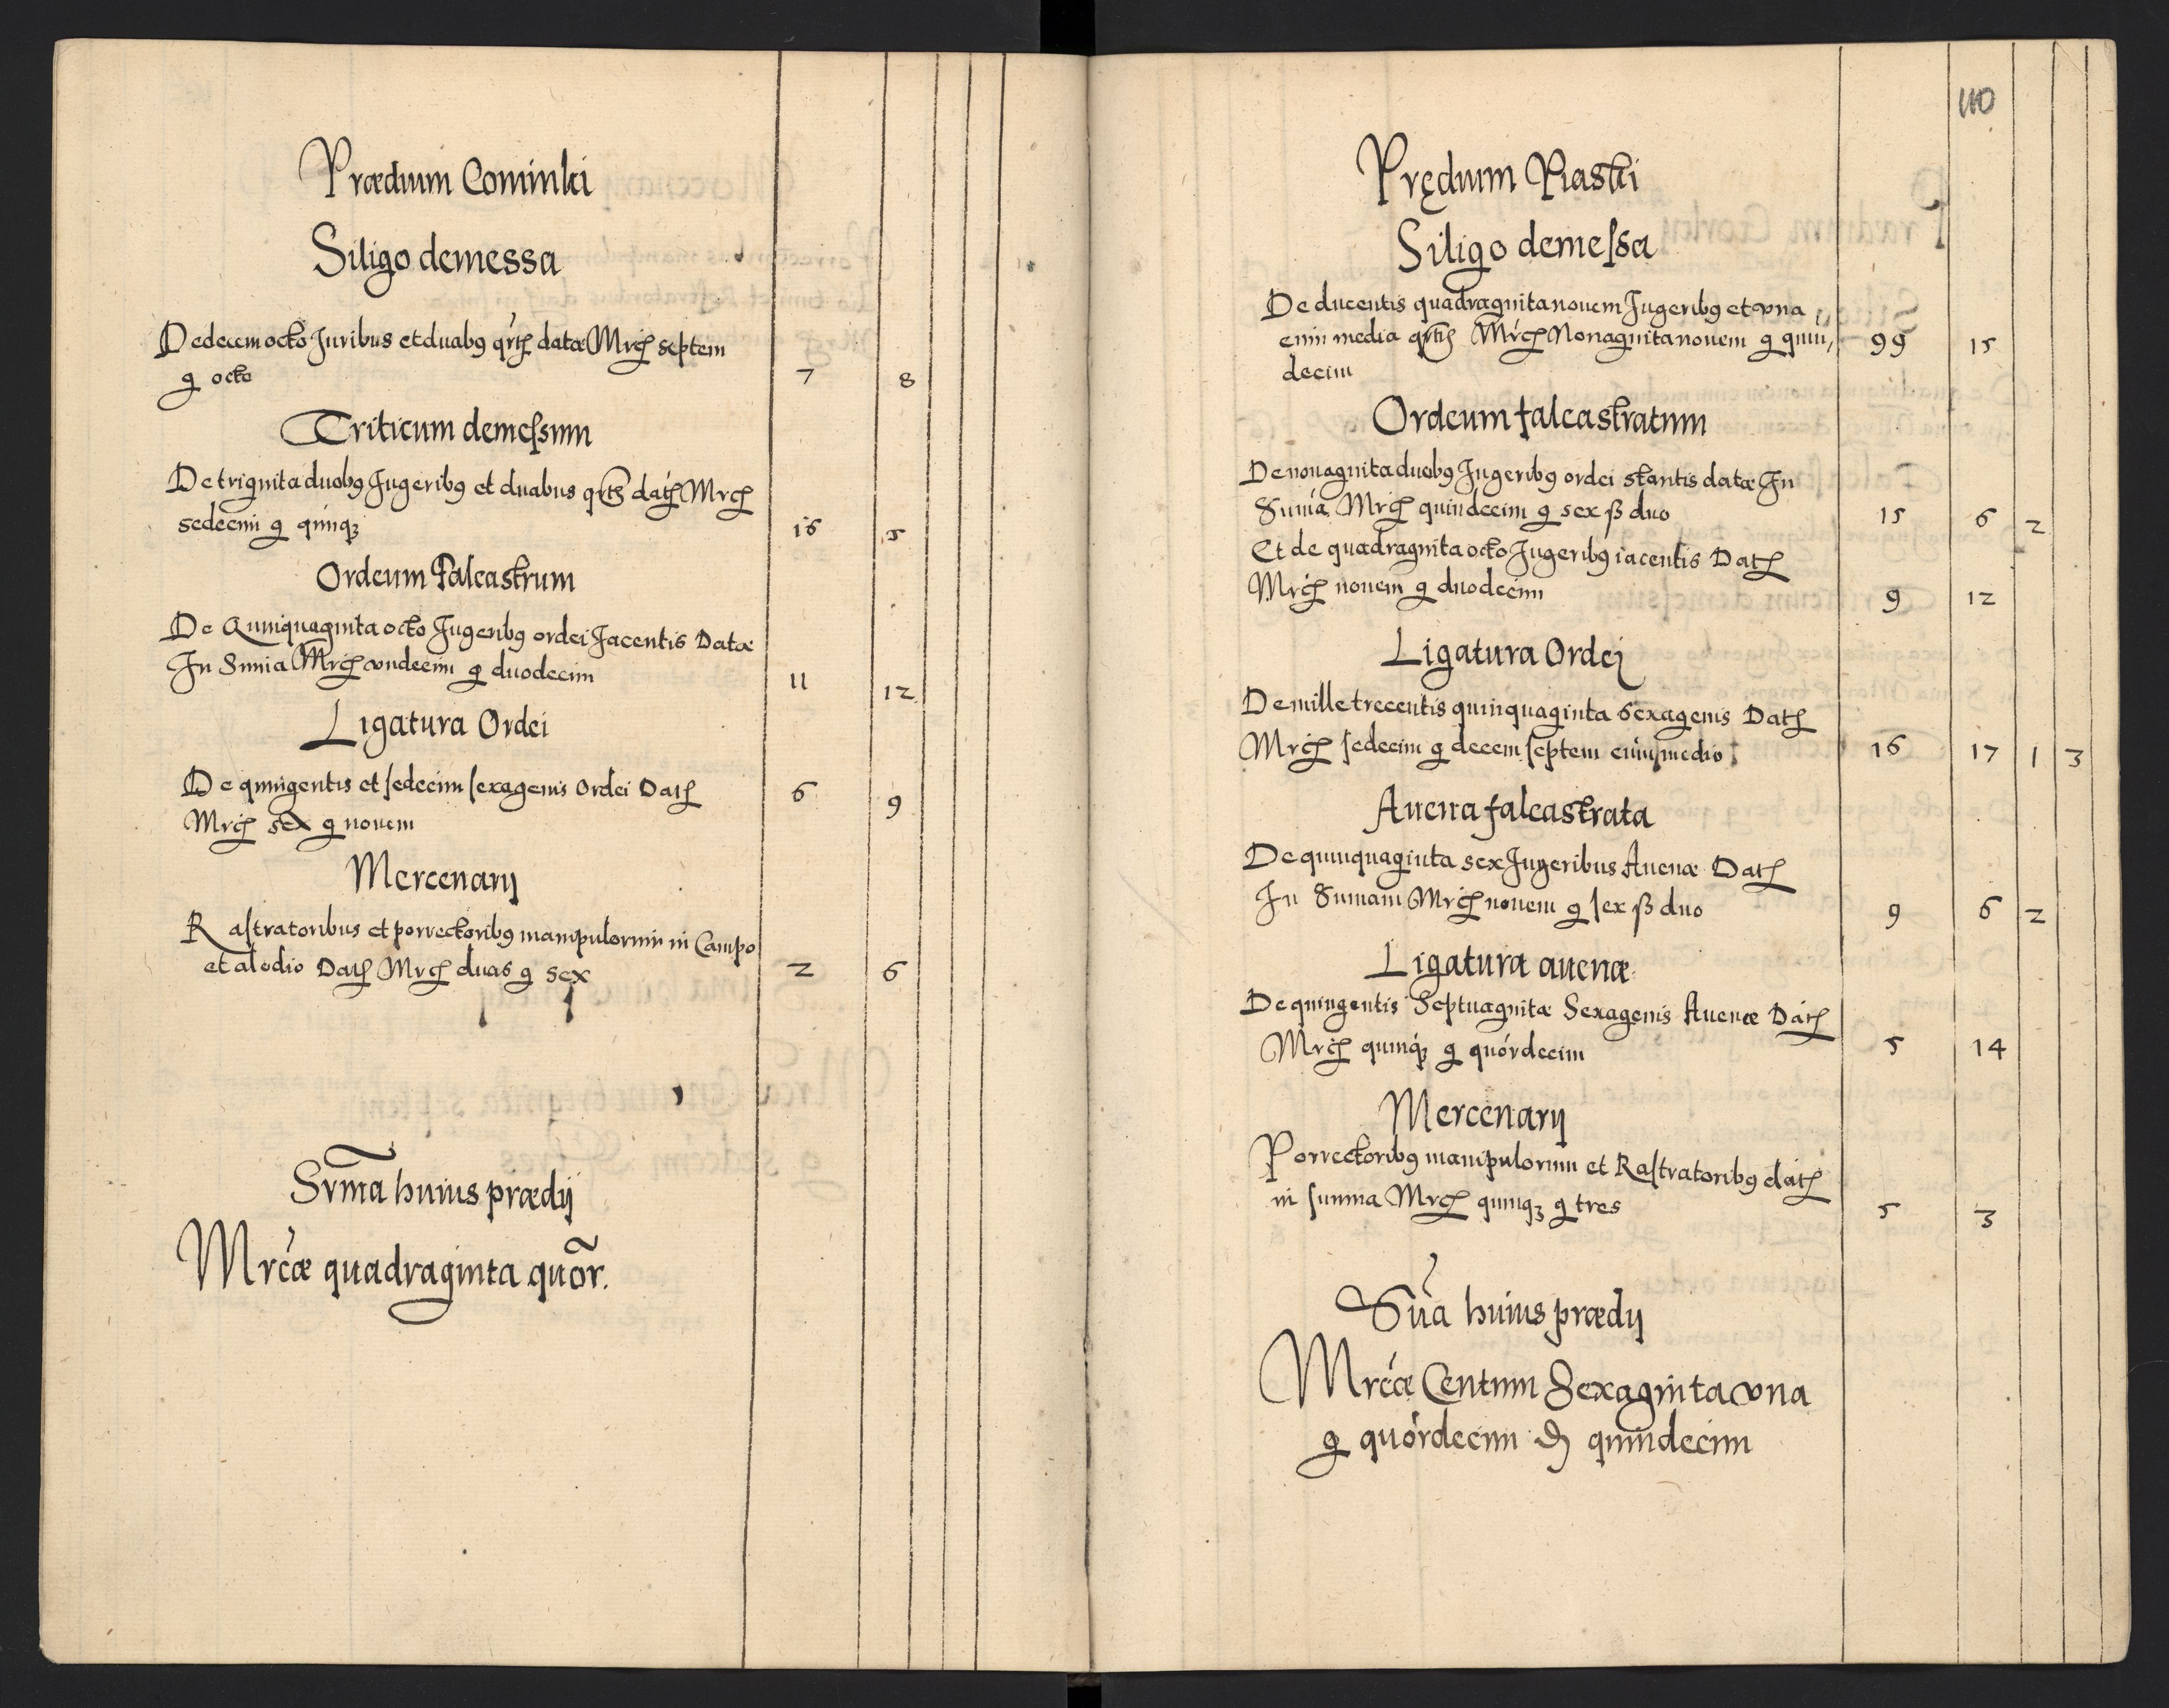 Prædium Cominki
Siligo demessa
De decem octo Juribus et duabꝰ qrt datæ Mrc septem
g octo 7 8
Triticum demeſsum
De triginta duobꝰ Jugeribꝰ et duabus qrt dat Mrc
sedecim g quinqꝫ 16 5
Ordeum Falcastrum
De Quinquaginta octo Jugeribꝰ ordei Jacentis Datæ
In Suma Mrc vndecim g duodecim 11 12
Ligatura Ordei
De quingentis et ſedecim ſexagenis Ordei Dat
Mrc sex g nouem 6 9
Mercenarij
Raſtratoribus et porrectoribꝰ manipulorum in Campo
et alodio Dat Mrc duas g sex 2 6
Sūma huius prædij
Mrcæ quadraginta quōr.
110
Prędium Piaski
Siligo demeſsa
De ducentis quadraginta nouem Jugeribꝰ et vna
cum media qrt Mrc Nonaginta nouem g quin, 99 15
decim
Ordeum falcastratum
De nonaginta duobꝰ Jugeribꝰ ordei stantis datæ In
Suma Mrc quindecim g sex ß duo 15 6 2
Et de quadraginta octo Jugeribꝰ iacentis Dat
Mrc nouem g duodecim 9 12
Ligatura Ordei
De mille trecentis quinquaginta sexagenis Dat
Mrc ſedecim g decem ſeptem cum medio 16 17 1 3
Auena falcastrata
De quinquaginta sex Jugeribus Auenæ Dat
In Sumam Mrc nouem g ſex ß duo 9 6 2
Ligatura auenæ
De quingentis Septuaginta Sexagenis Auenæ Dat
Mrc quinqꝫ g quordecim 5 14
Mercenarij
Porrectoribꝰ manipulorum et Raſtratoribꝰ dat
in ſumma Mrc quinqꝫ g tres 5 3
Sua huius prædij
Mrcæ Centum Sexaginta vna
g quordecim ₰ quindecim